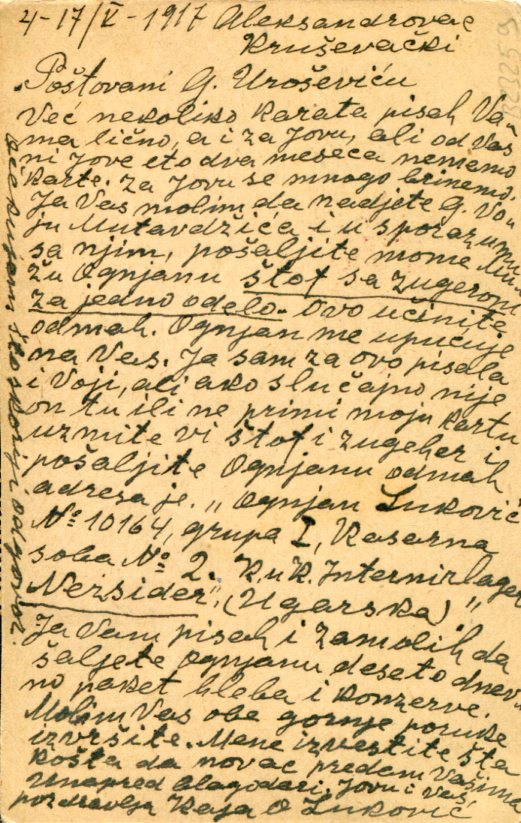 4-17/V-1917 Aleksandrovac
Kruševački
Poštovani G. Uroševiću
Već nekoliko karata pisah Va-
ma lično, a i za Jovu, ali od Vas
ni Jove eto dva meseca nemamo
karte. Za Jovu se mnogo brinemo.
Ja Vas molim da nadjete G. Vo-
ju Mutavdžića i u sporazumu
sa njim, pošaljite mome mu-
žu Ognjanu štof sa zugerom
za jedno odelo. Ovo učinite
odmah. Ognjan me upućuje
na Vas. Ja sam za ovo pisala
i Voji, ali ako slučajno nije
on tu ili ne primi moju kartu
uzmite vi štof i zugeher i
pošaljite Ognjanu odmah
adresa je. „Ognjan Luković
№ 10164, grupa I, Kasarna
soba № 2. K.u.K. Internirlager
Nezsider", (Ugarska)"
Ja Vam pisah i zamolih da
šaljete Ognjanu desetodnev-
no paket hleba i konzerve.
Molim Vas obe gornje poruke
izvršite. Mene izvestite šta
košta da novac predem Vašima
Unapred blagodari. Jovu i Vas
pozdravlja Kaja O Luković
Očekujem što skoriji odgovor